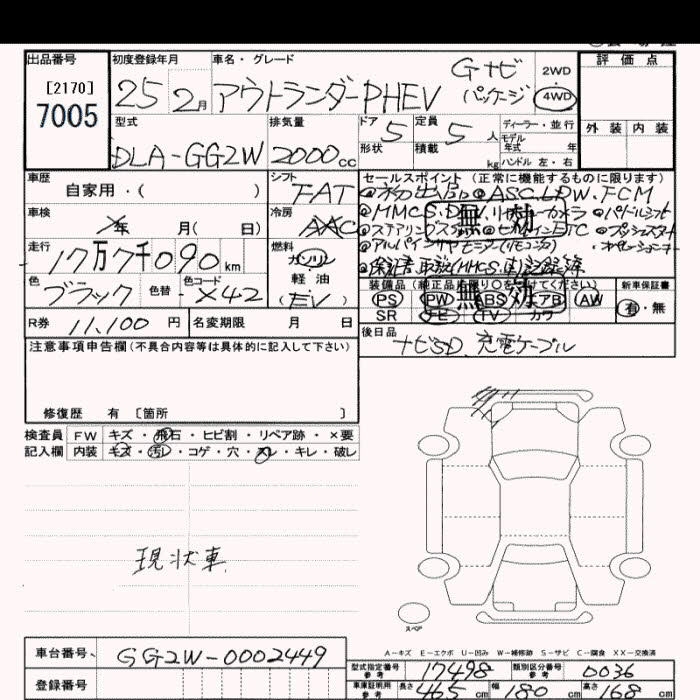 出品番号 初度登録年月 車名・グレード 評価点
[2170]
7005
25 2月 アウトランダーPHEV Gナビ パッケージ 2WD 4WD
型式 排気量 ドア 定員 ディーラー・並行 外装 内装
DLA-GG2W 2000cc 5 5人 モデル年式 年
形状 積載 kg ハンドル 左・右
車歴 シフト セールスポイント (正常に機能するものに限ります)
自家用・( ) FAT
車検 年 月( 日) 冷房 AAC
◎MMCS
無効
走行 燃料 ガソリン
17万7千090km 軽油
色 色替 色コード (EV)
ブラック X42
◎保証書
装備品 新車保証書
PS PW ABS エアB AW 有・無
SR ナビ TV カワ
無効
R券 11,100円 名変期限 月 日
後日品
ナビSD 充電ケーブル
注意事項申告欄(不具合内容等は具体的に記入して下さい)
修復歴 有 [箇所 ]
検査員 FW キズ・飛石・ヒビ割・リペア跡・×要
記入欄 内装 キズ・汚レ・コゲ・穴・スレ・キレ・破レ
現状車
スペア
A-キズ E-エクボ U-凹み W-補修跡 S-サビ C-腐食 XX-交換済
車台番号 GG2W-0002449
型式指定番号 参考 17498 類別区分番号 参考 0036
登録番号
車庫証明用 参考 長さ 465cm 幅 180cm 高さ 168cm